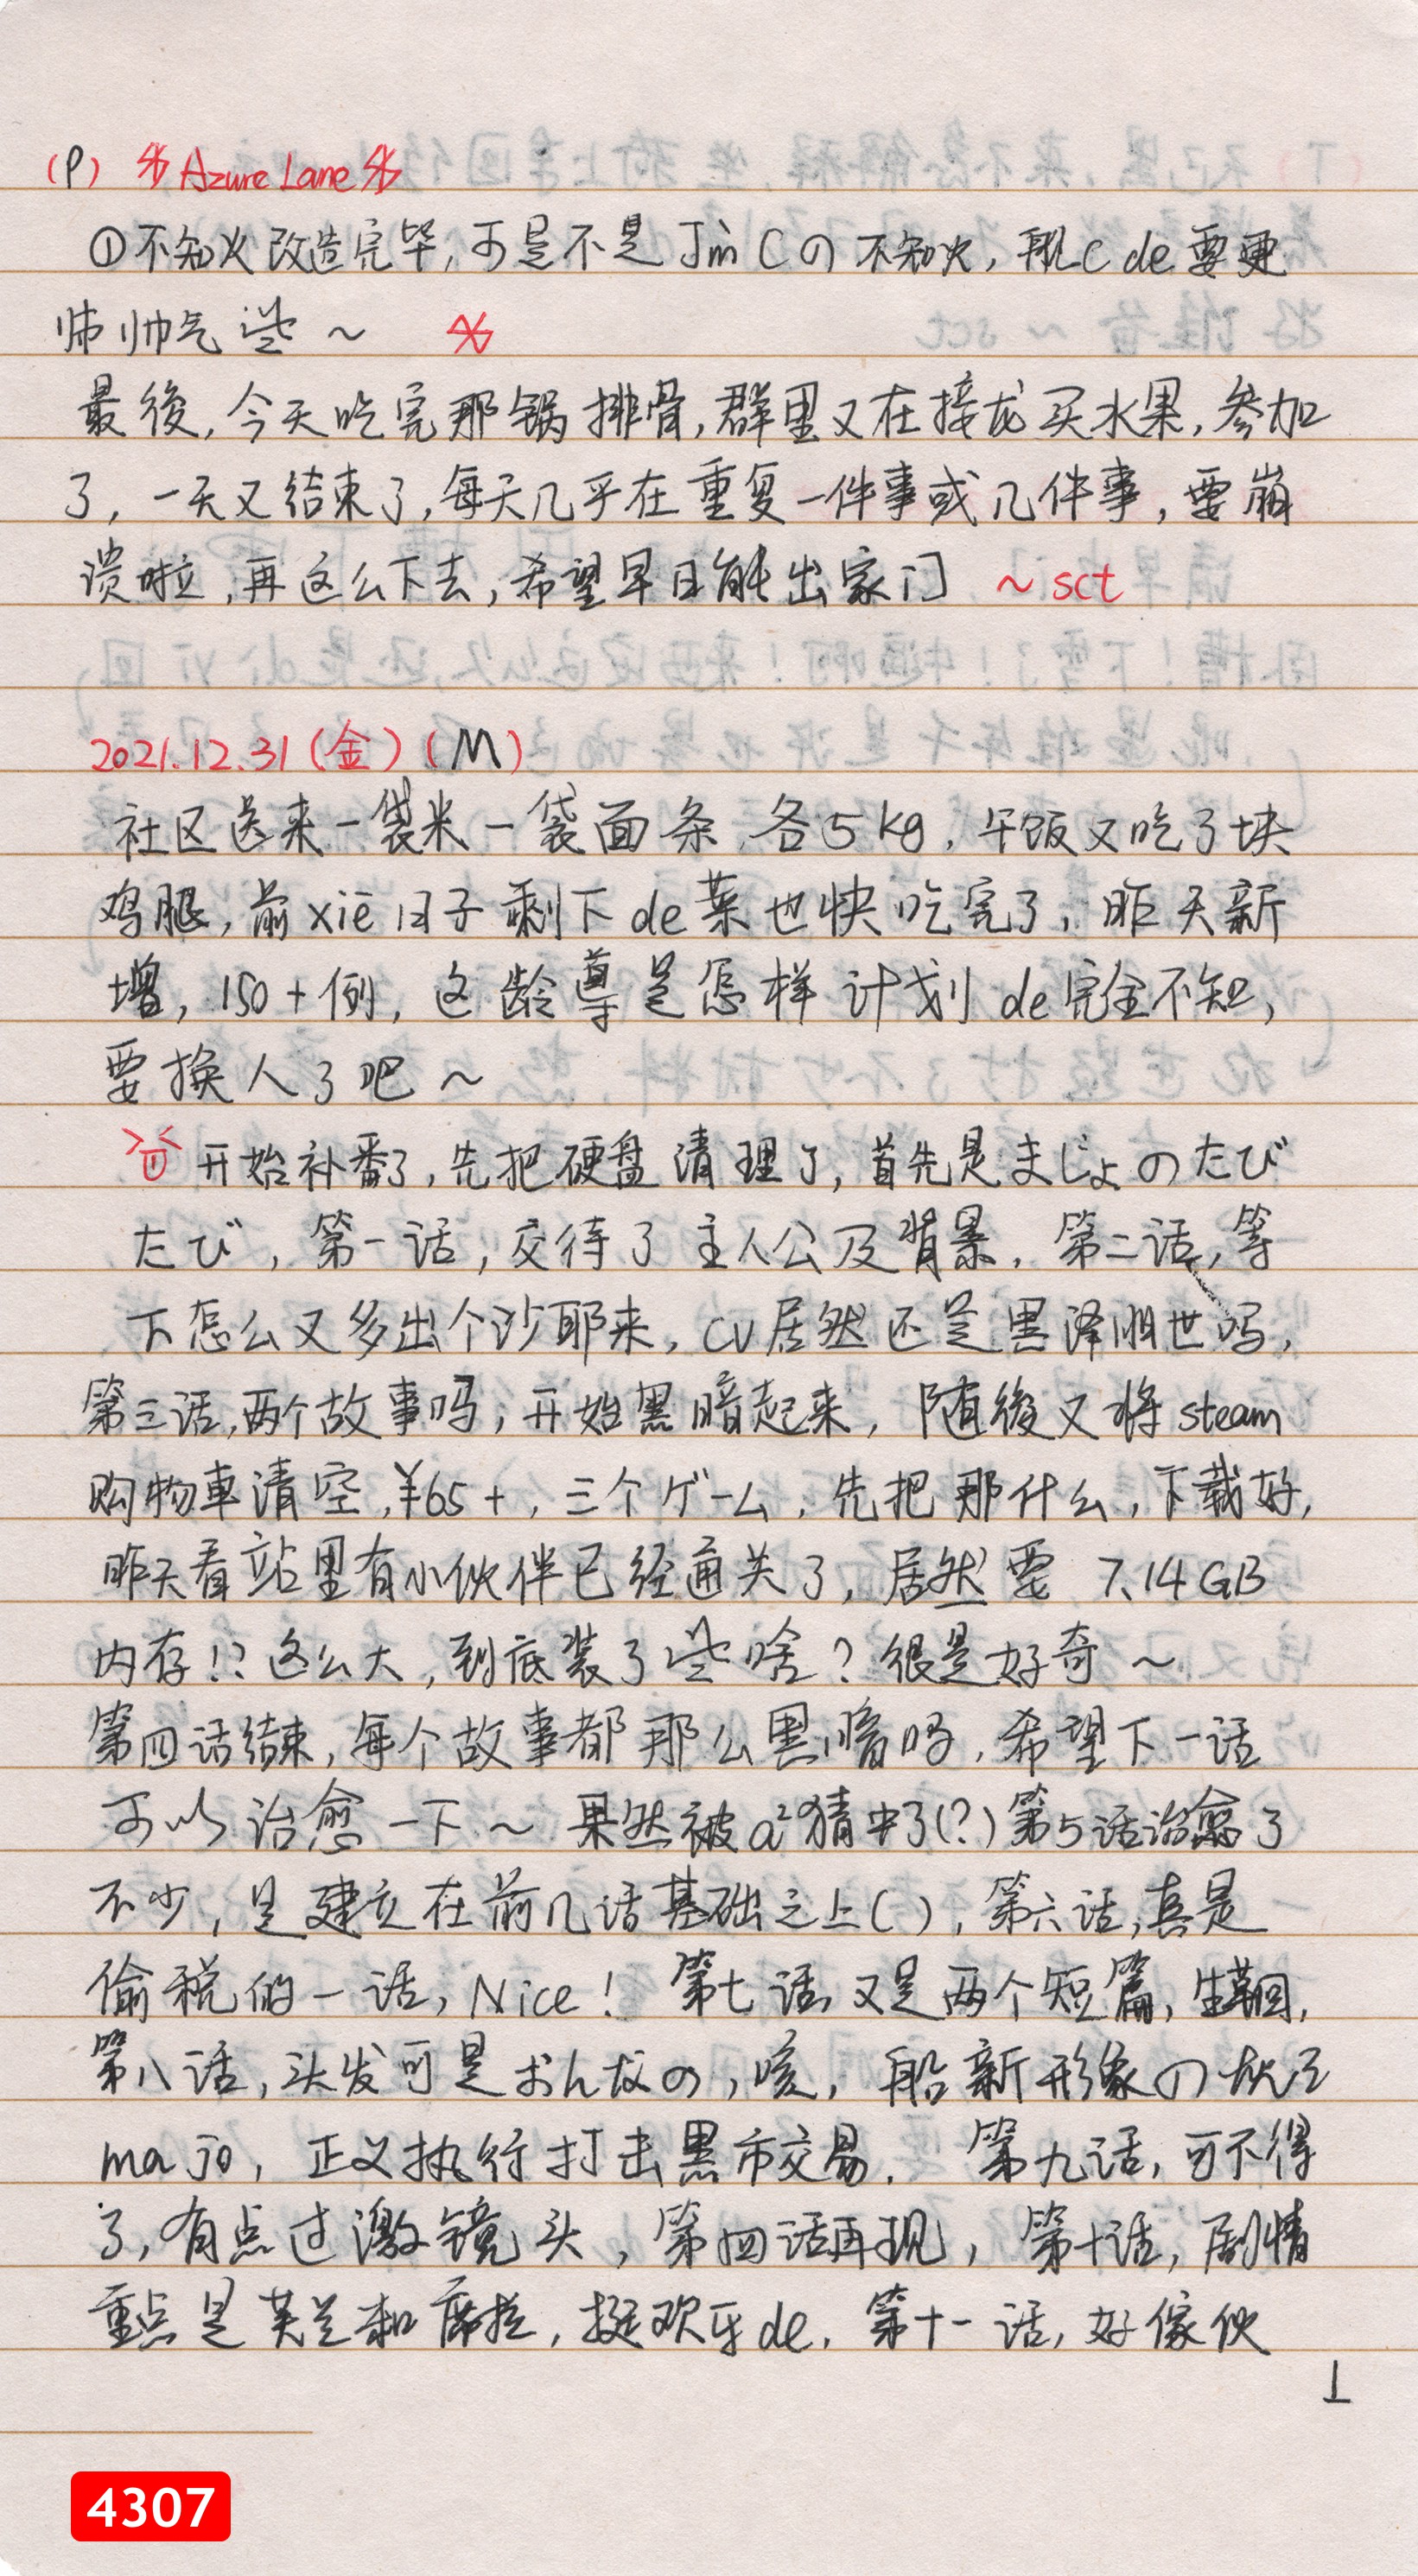 (P) Azure Lane
①不知火改造完毕,可是不是JmCの不知火,那C de要更
帅帅气些~
最後,今天吃完那锅排骨,群里又在接龙买水果,参加
了,一天又结束了,每天几乎在重复一件事或几件事,要崩
溃啦,再这么下去,希望早日能出家门 ~sct
2021.12.31(金)(M)
社区送来一袋米一袋面条,各5kg,午饭又吃了块
鸡腿,前xiē日子剩下de菜也快吃完了,昨天新
增,150+例,这龄导是怎样计划de完全不知,
要换人了吧~
① 开始补番了,先把硬盘清理了,首先是まじょのたび
たび,第一话,交待了主人公及背景,第二话,等
下怎么又多出个沙耶来,CV居然还是黑泽朋世吗,
第三话,两个故事吗,开始黑暗起来,随後又将steam
购物車清空,¥65+,三个ゲーム,先把那什么,下载好,
昨天看站里有小伙伴已经通关了,居然要 7.14GB
内存!?这么大,到底装了些啥?很是好奇~
第四话结束,每个故事都那么黑暗吗,希望下一话
可以治愈一下~ 果然被a²猜中了(?)第5话治愈了
不少,是建立在前几话基础之上(),第六话,真是
偷税的一话,Nice! 第七话,又是两个短篇,生草回,
第八话,头发可是おんなの,咳,船新形象の
majo,正义执行打击黑市交易. 第九话,可不得
了,有点过激镜头,第四话再现,第十话,剧情
重点是芙兰和席拉,挺欢乐de,第十一话,好傢伙
⊥
4307